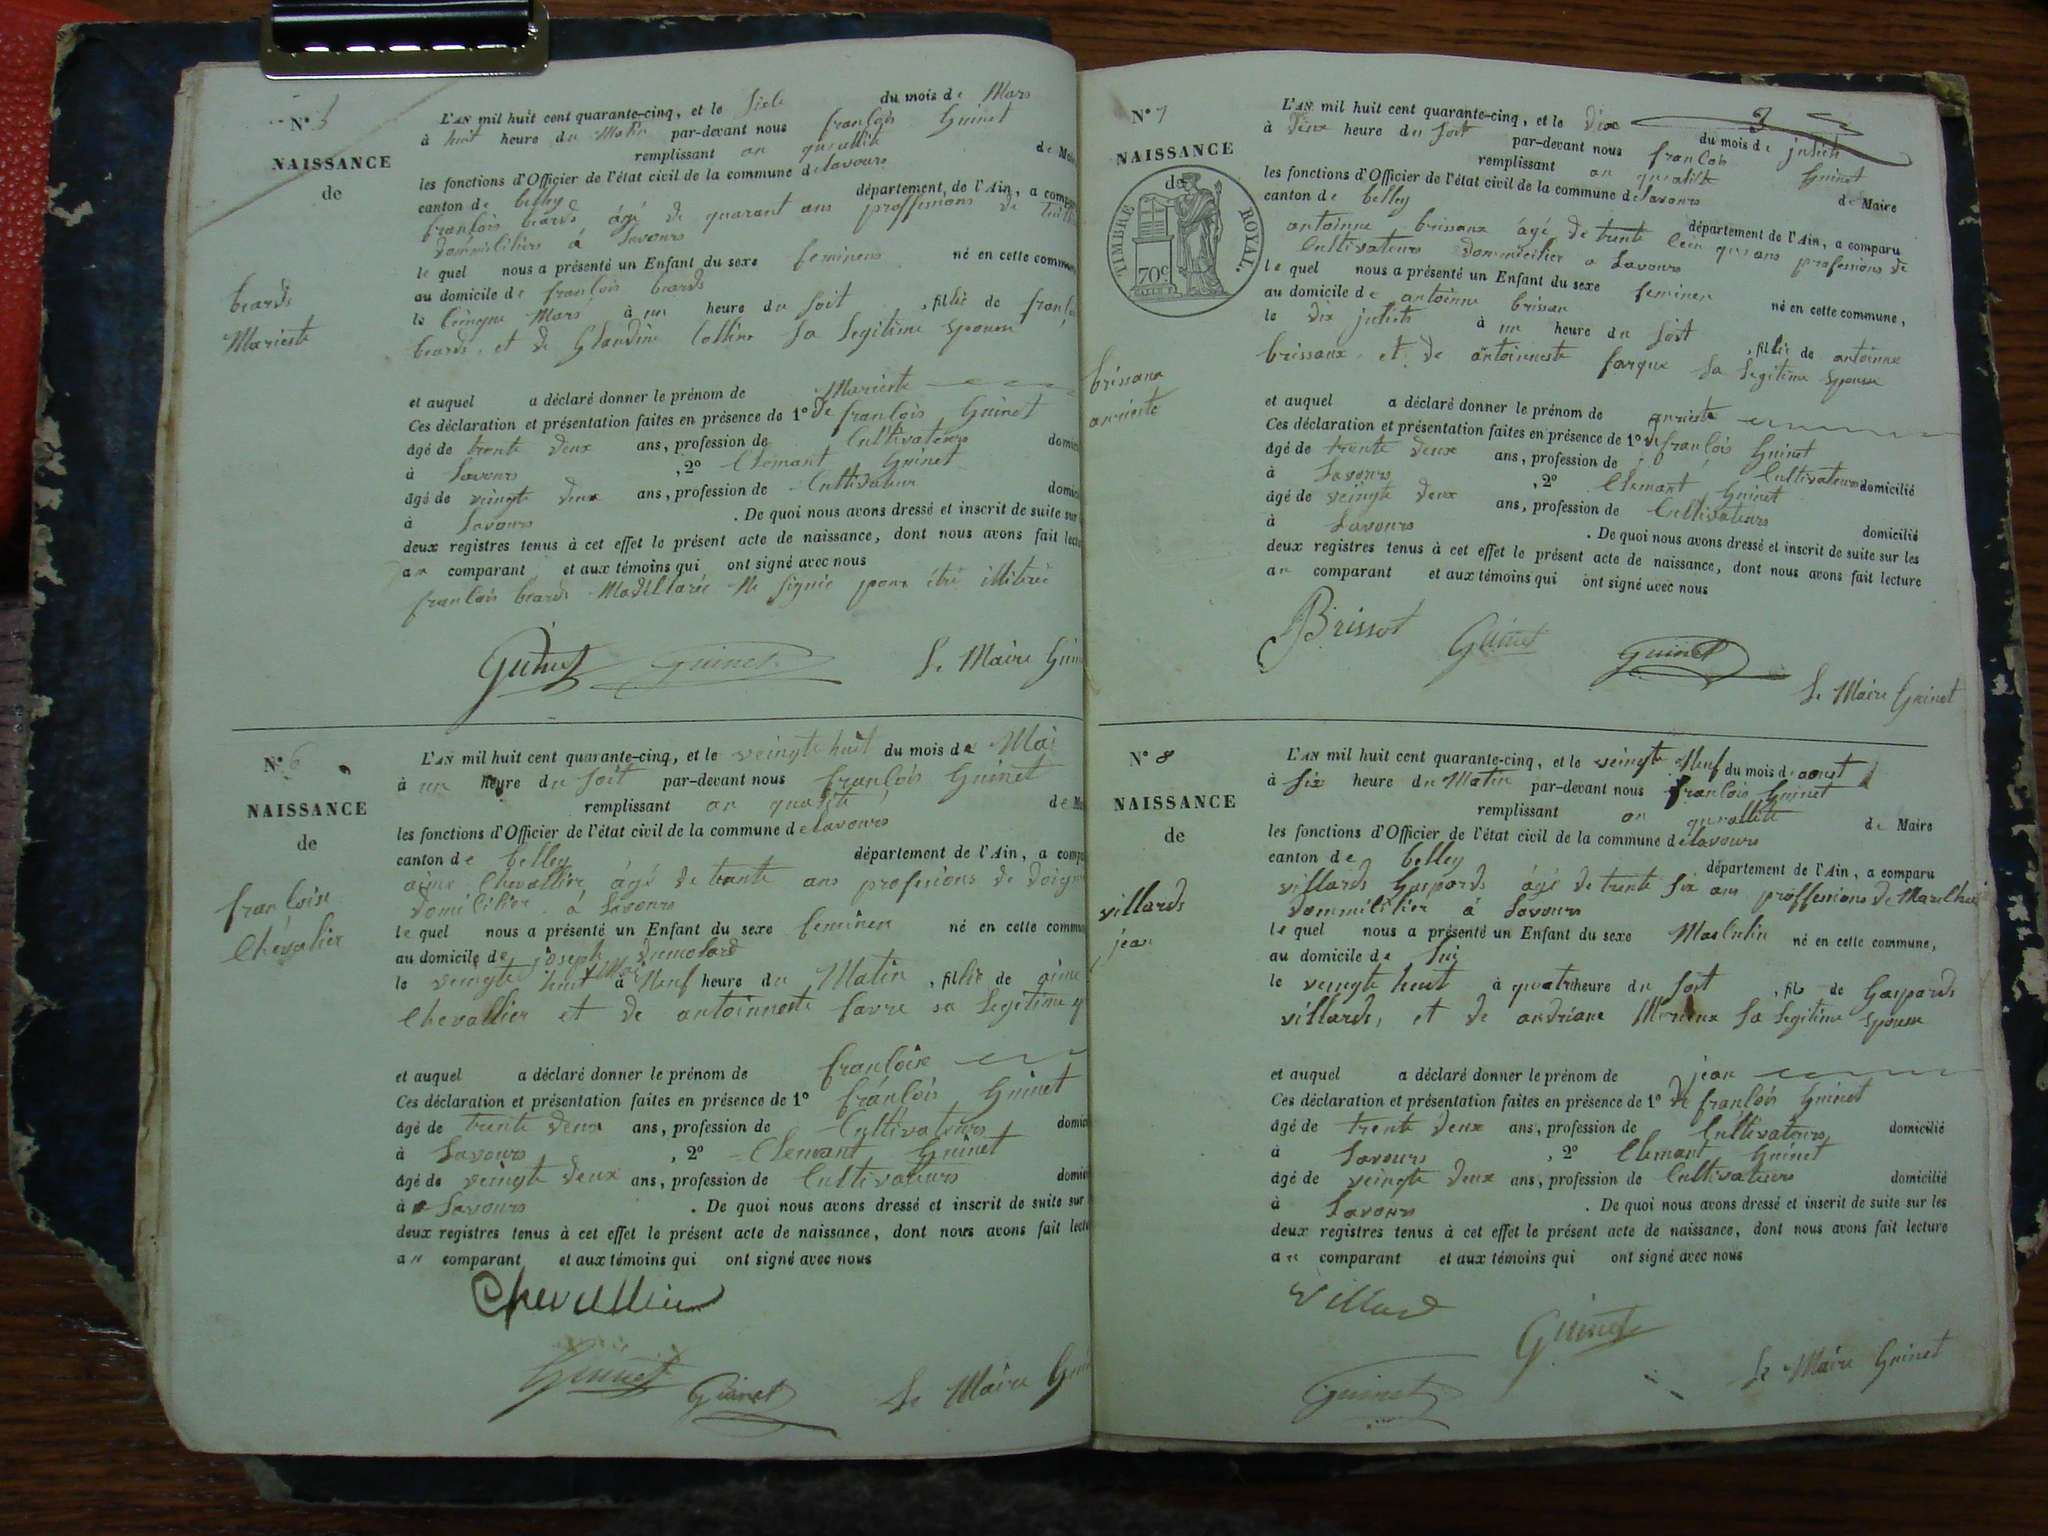 N° 5
NAISSANCE
de
beards
Mariette
L'AN mil huit cent quarante-cinq, et le du mois de Mars
à huit heure du Matin par-devant nous françois Guinet
remplissant an quallité de Mai
les fonctions d'Officier de l'état civil de la commune de Lavours
canton de belley département de l'Ain, a compa
françois beards âgé de quarant ans proffessions de
dommilicier à Lavours
le quel nous a présenté un Enfant du sexe feminens né en cette commun
au domicile de françois beards
le Cinque Mars à un heure du soit , fillie de franç
beards, et de Glaudine Collins sa legitime spouse
et auquel a déclaré donner le prénom de Mariette
Ces déclaration et présentation faites en présence de 1° de françois Guinet
âgé de trente deux ans, profession de Cultivateurs domici
à Lavours , 2° Clemant Guinet
âgé de veingte deux ans, profession de Cultivateur domici
à Lavours . De quoi nous avons dressé et inscrit de suite sur
deux registres tenus à cet effet le présent acte de naissance, dont nous avons fait lectu
au comparant et aux témoins qui ont signé avec nous
françois beards Ne signie pour étré illitiré
Guinet Guinet Le Maire Guin
N° 6
NAISSANCE
de
françoise
Chevalier
L'AN mil huit cent quarante-cinq, et le veingte huit du mois de Mai
à un heure du soit par-devant nous françois Guinet
remplissant an qualité de Ma
les fonctions d'Officier de l'état civil de la commune de Lavours
canton de belley département de l'Ain, a compa
aime Chevallier âgé de trante ans profesions de
domilicier à Lavours
le quel nous a présenté un Enfant du sexe feminen né en cette commu
au domicile de joseph dumolard
le veingte huit Mai à Neuf heure du Matin , fillie de aime
Chevallier et de antoinnette favre sa legitime
et auquel a déclaré donner le prénom de françoise
Ces déclaration et présentation faites en présence de 1° françois Guinet
âgé de trente deux ans, profession de Cultivateurs domici
à Lavours , 2° Clemant Guinet
âgé de veingte deux ans, profession de Cultivateurs domici
à Lavours . De quoi nous avons dressé et inscrit de suite sur
deux registres tenus à cet effet le présent acte de naissance, dont nous avons fait lectu
au comparant et aux témoins qui ont signé avec nous
Chevallier
Guinet Guinet Le Maire Gui
N° 7
NAISSANCE
de
TIMBRE ROYAL.
70c
brissaux
anriette
L'AN mil huit cent quarante-cinq, et le dix du mois de juliets
à deux heure du soit par-devant nous françois Guinet
remplissant an quralité de Maire
les fonctions d'Officier de l'état civil de la commune de Lavours
canton de belley département de l'Ain, a comparu
antoinne brissaux âgé de trente ans profesions de
Cultivateurs dommicilier a Lavours
le quel nous a présenté un Enfant du sexe feminen né en cette commune,
au domicile de antoinne brissau
le dix juliets à un heure du soit , fillie de antoinne
brissaux, et de antoinnette farque sa legitime spouse
et auquel a déclaré donner le prénom de anriette
Ces déclaration et présentation faites en présence de 1° d françois Guinet
âgé de trente deux ans, profession de Cultivateurs domicilié
à Lavours , 2° Clemant Guinet
âgé de veingte deux ans, profession de Cultivateurs domicilié
à Lavours . De quoi nous avons dressé et inscrit de suite sur les
deux registres tenus à cet effet le présent acte de naissance, dont nous avons fait lecture
au comparant et aux témoins qui ont signé avec nous
Brissot Guinet Guinet
Le Maire Guinet
N° 8
NAISSANCE
de
villards
jean
L'AN mil huit cent quarante-cinq, et le veingte Neuf du mois d aoust
à six heure du Matin par-devant nous françois Guinet
remplissant an quralité de Maire
les fonctions d'Officier de l'état civil de la commune de Lavours
canton de belley département de l'Ain, a comparu
villards Gaspards âgé de trente six ans proffessions de
dommilicier à Lavours
le quel nous a présenté un Enfant du sexe Masculin né en cette commune,
au domicile de lui
le veingte huit à quatre heure du soit , fils de Gaspards
villards, et de andriane sa legitime spouse
et auquel a déclaré donner le prénom de jean
Ces déclaration et présentation faites en présence de 1° de françois Guinet
âgé de trente deux ans, profession de Cultivateurs domicilié
à Lavours , 2° Clemant Guinet
âgé de veingte deux ans, profession de Cultivateurs domicilié
à Lavours . De quoi nous avons dressé et inscrit de suite sur les
deux registres tenus à cet effet le présent acte de naissance, dont nous avons fait lecture
au comparant et aux témoins qui ont signé avec nous
Villard
Guinet
Guinet Le Maire Guinet